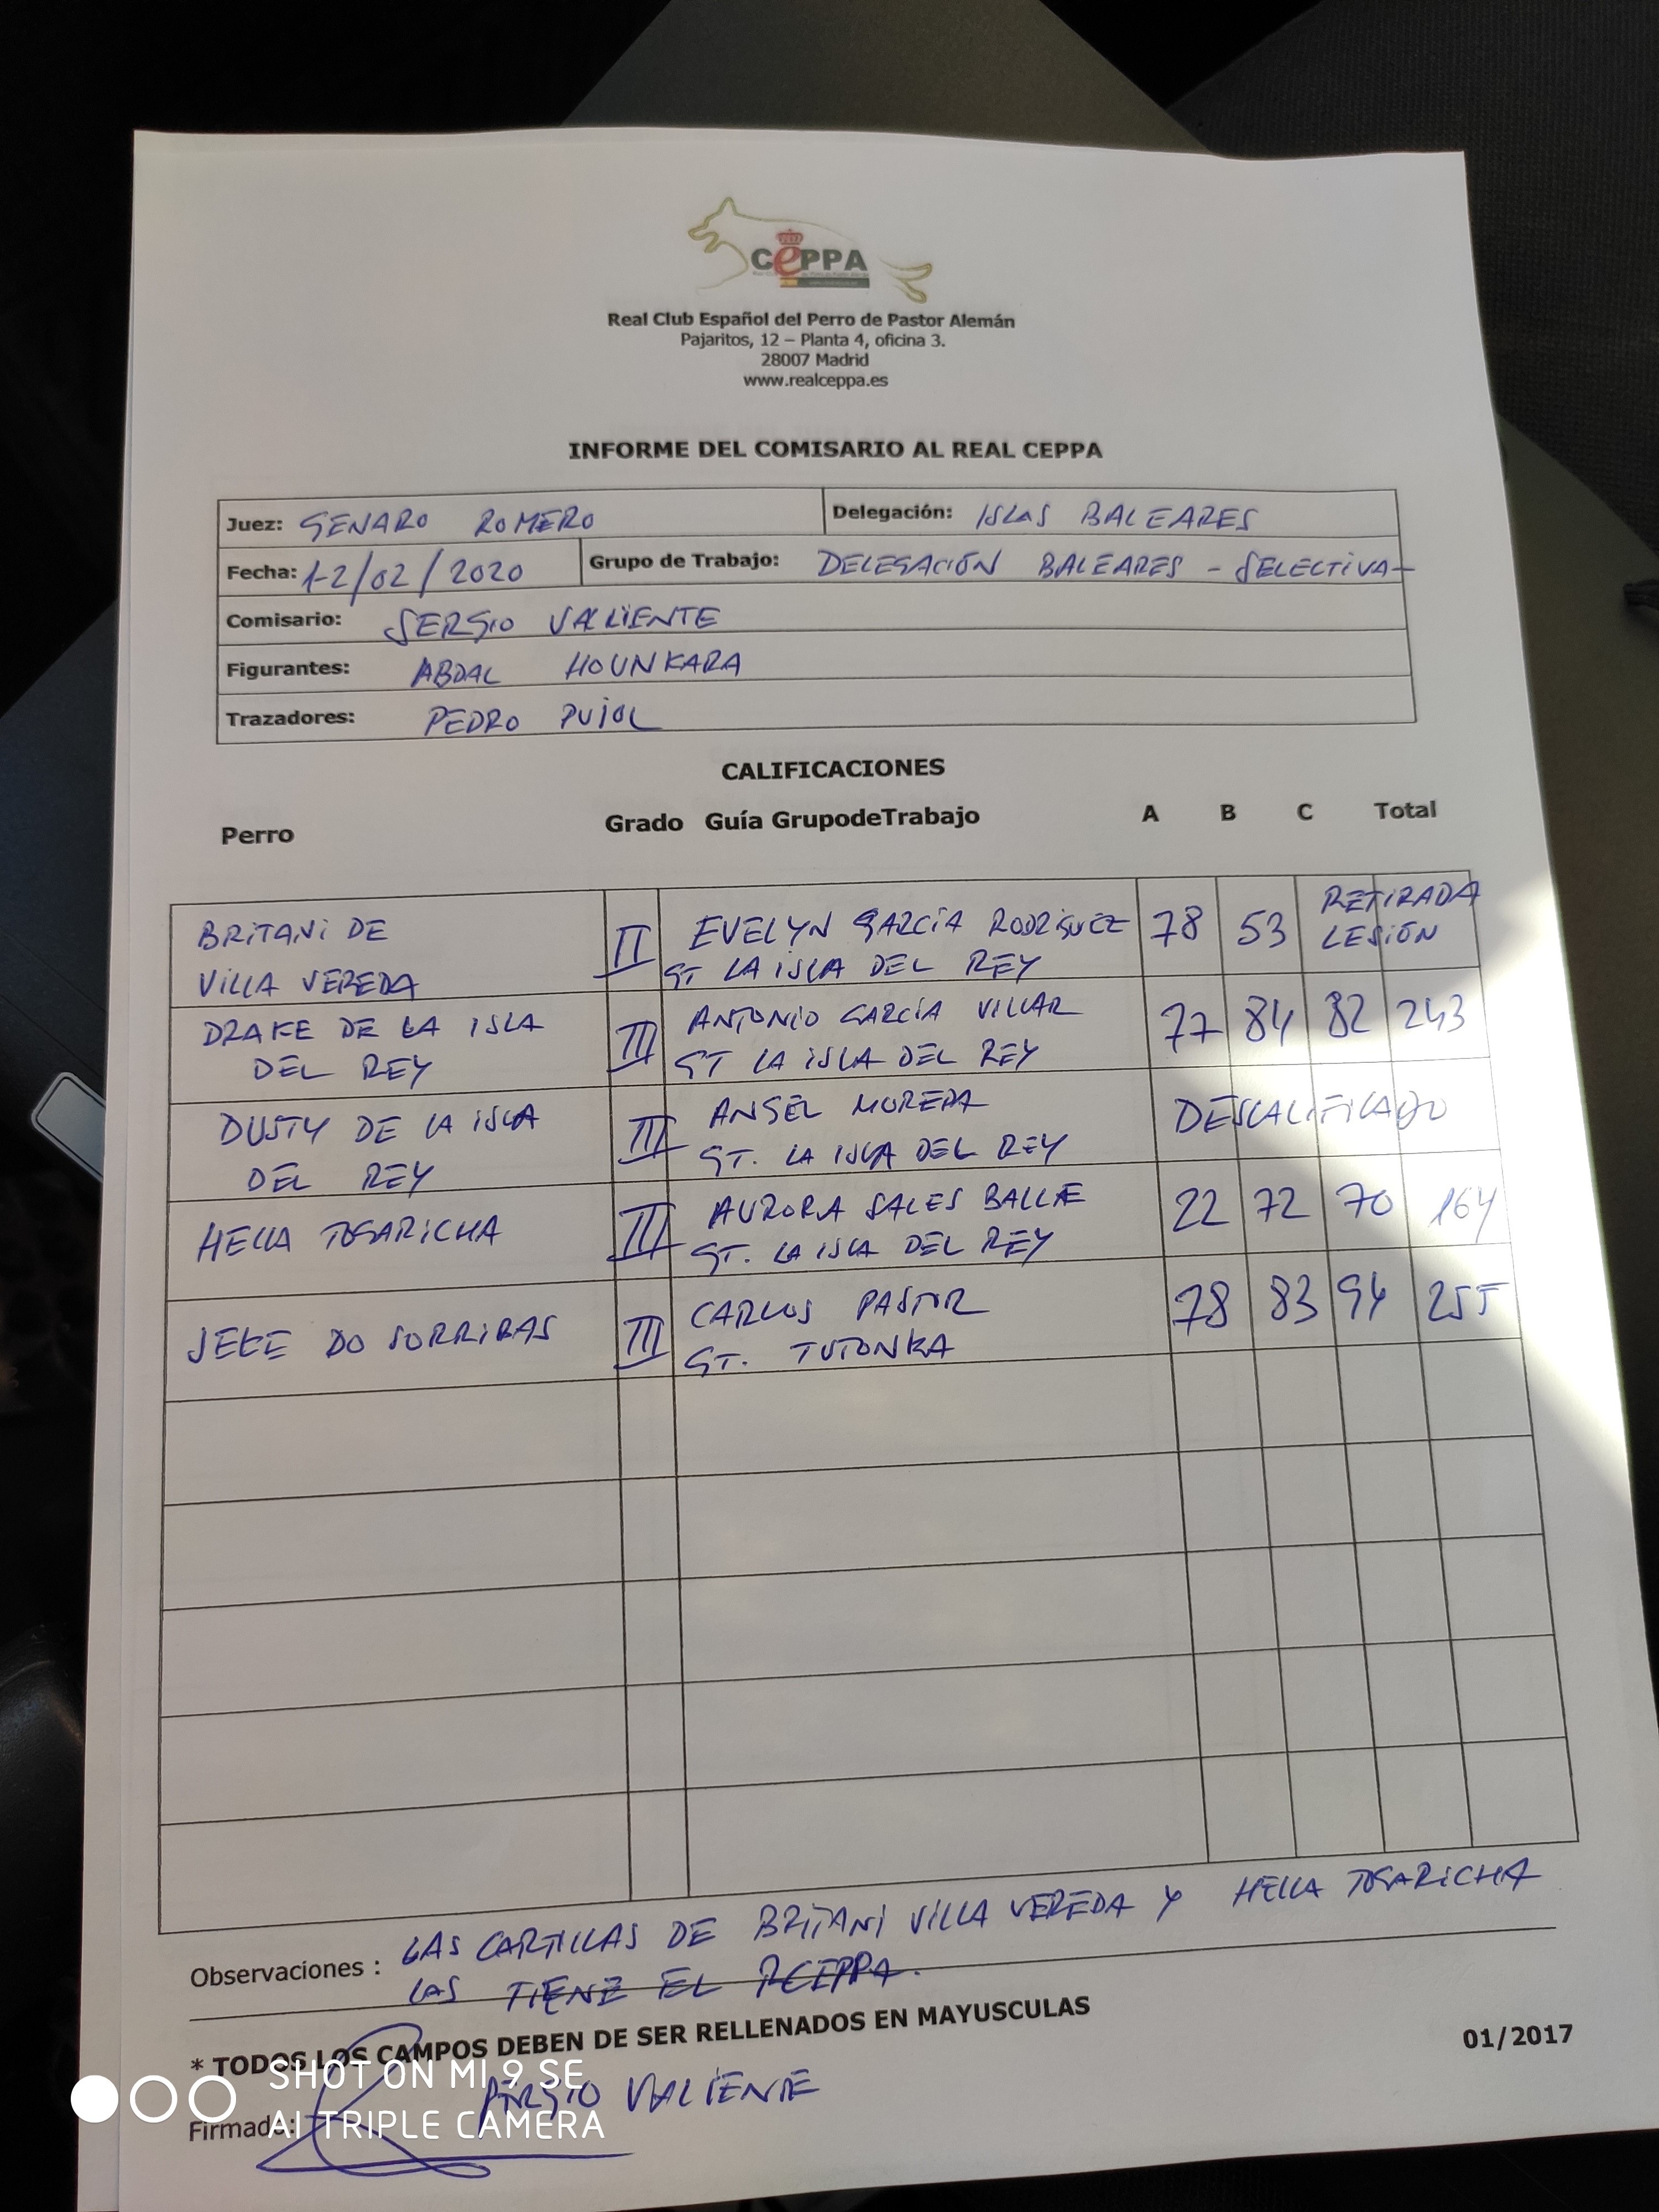 CEPPA
Real Club Español del Perro de Pastor Alemán
Pajaritos, 12 – Planta 4, oficina 3.
28007 Madrid
www.realceppa.es
INFORME DEL COMISARIO AL REAL CEPPA
Juez: GENARO ROMERO Delegación: ISLAS BALEARES
Fecha: 1-2/02/2020 Grupo de Trabajo: DELEGACIÓN BALEARES - SELECTIVA-
Comisario: SERGIO VALIENTE
Figurantes: ABDAL HOUNKARA
Trazadores: PEDRO PUJOL
CALIFICACIONES
Perro Grado Guía GrupodeTrabajo A B C Total
BRITANI DE
VILLA VEREDA II EVELYN GARCÍA RODRIGUEZ
GT LA ISLA DEL REY 78 53 RETIRADA
LESIÓN
DRAKE DE LA ISLA
DEL REY III ANTONIO GARCÍA VILLAR
GT LA ISLA DEL REY 77 84 82 243
DUSTY DE LA ISLA
DEL REY III ANGEL MORERA
GT. LA ISLA DEL REY DESCALIFICADO
HELLA TOGARICHA III AURORA SALES BALLE
GT. LA ISLA DEL REY 22 72 70 164
JEKE DO SORRIBAS III CARLOS PASTOR
GT. TUTONKA 78 83 94 255
Observaciones : LAS CARTILLAS DE BRITANI VILLA VEREDA Y HELLA TOGARICHA
LAS TIENE EL RCEPPA.
* TODOS LOS CAMPOS DEBEN DE SER RELLENADOS EN MAYUSCULAS
01/2017
Firmado: SERGIO VALIENTE
SHOT ON MI 9 SE
AI TRIPLE CAMERA